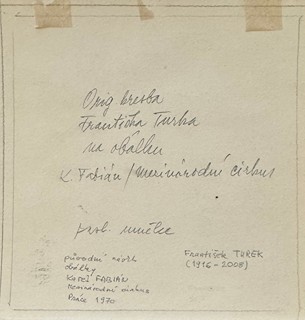 Orig. kresba
Františka Turka
na obálku
K. Fabián / mezinárodní cirkus
František TUREK
(1916-2008)
původní návrh
obálky
Karel FABIÁN
mezinárodní cirkus
Práce 1970